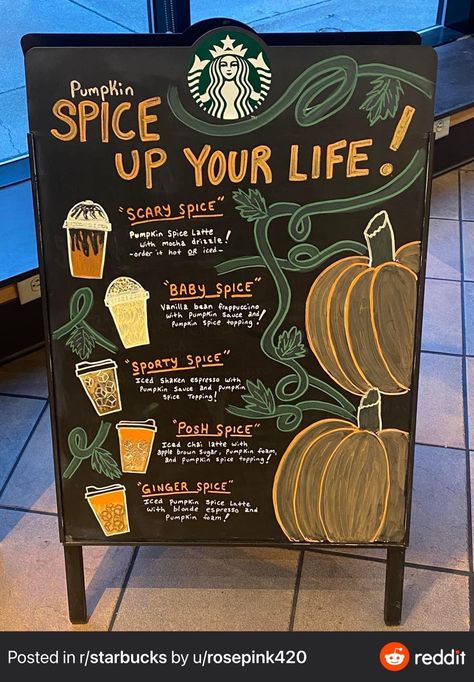 Pumpkin
SPICE
UP YOUR LIFE!
"SCARY SPICE"
Pumpkin Spice Latte
with mocha drizzle!
-order it hot OR iced-
"BABY SPICE"
Vanilla bean frappuccino
with pumpkin sauce and
pumpkin spice topping!
"SPORTY SPICE"
Iced shaken espresso with
pumpkin sauce and pumpkin
spice topping!
"POSH SPICE"
Iced chai latte with
apple brown sugar, pumpkin foam,
and pumpkin spice topping!
"GINGER SPICE"
Iced pumpkin spice latte
with blonde espresso and
pumpkin foam!
Posted in r/starbucks by u/rosepink420
reddit